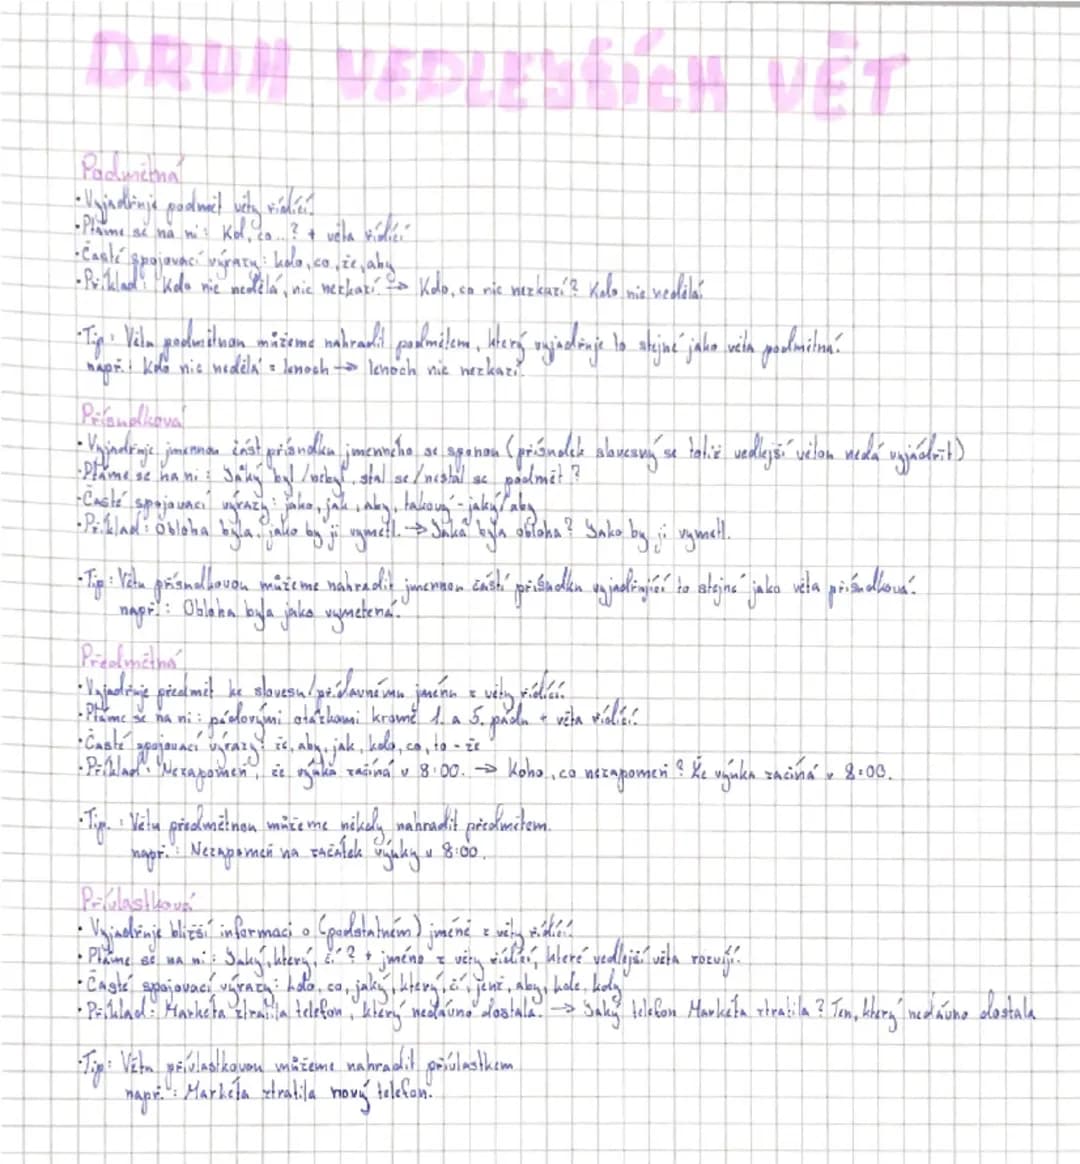 DRUH VEDLEJŠÍCH VĚT
Podmětná
• Vyjadřuje podmět věty řídící.
• Ptáme se na ni: Kdo, co...? + věta řídící
• Časté spojovací výrazy: kdo, co, že, aby
• Příklad: Kdo nic nedělá, nic nezkazí. → Kdo, co nic nezkazí? Kdo nic nedělá.
• Tip: Větu podmětnou můžeme nahradit podmětem, který vyjadřuje to stejné jako věta podmětná.
např.: Kdo nic nedělá = lenoch → lenoch nic nezkazí.
Přísudková
• Vyjadřuje jmennou část přísudku jmenného se sponou (přísudek slovesný se totiž vedlejší větou nedá vyjádřit)
• Ptáme se na ni: Jaký byl/nebyl, stal se/nestal se podmět?
• Časté spojovací výrazy: jako, jak, aby, takový - jaký/aby
• Příklad: Obloha byla, jako by ji vymetl. → Jaká byla obloha? Jako by ji vymetl.
• Tip: Větu přísudkovou můžeme nahradit jmennou částí přísudku vyjadřující to stejné jako věta přísudková.
např.: Obloha byla jako vymetená.
Předmětná
• Vyjadřuje předmět ke slovesu/přídavnému jménu z věty řídící.
• Ptáme se na ni: pádovými otázkami kromě 1. a 5. pádu + věta řídící.
• Časté spojovací výrazy: že, aby, jak, kdo, co, to - že
• Příklad: Nezapomeň, že výuka začíná v 8:00. → Koho, co nezapomeň? Že výuka začíná v 8:00.
• Tip: Větu předmětnou můžeme někdy nahradit předmětem.
např.: Nezapomeň na začátek výuky v 8:00.
Přívlastková
• Vyjadřuje bližší informaci o (podstatném) jméně z věty řídící.
• Ptáme se na ni: Jaký, který, čí? + jméno z věty řídící, které vedlejší věta rozvíjí.
• Časté spojovací výrazy: kdo, co, jaký, který, čí, jenž, aby, kde, kdy
• Příklad: Markéta ztratila telefon, který nedávno dostala. → Jaký telefon Markéta ztratila? Ten, který nedávno dostala
• Tip: Větu přívlastkovou můžeme nahradit přívlastkem
např.: Markéta ztratila nový telefon.